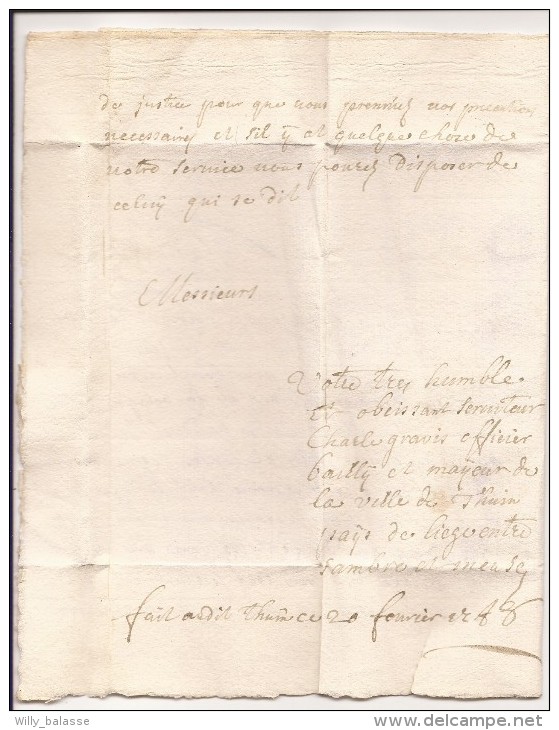 de justice pour que vous prenniez vos precautions
necessaires et s'il ÿ at quelque chose de
votre service vous pourez disposer de
celuy qui se dit
Messieurs
Votre tres humble
et obeissant serviteur
Charle gravis officier
baillÿ et maÿeur de
la ville de Thuin
païs de liege entre
sambre et meuse
fait audit Thuin ce 20 fevrier 1748
Willy_balasse
http://www.delcampe.net